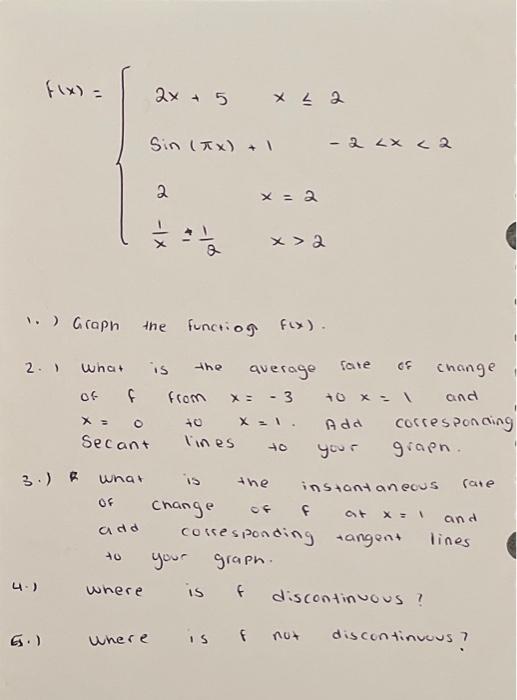 f(x) =
2x + 5 x ≤ 2
Sin (πx) + 1 - 2 < x < 2
2 x = 2
1/x 1/2 x > 2
1. ) Graph the function f(x).
2. ) What is the average rate of change
of f from x = - 3 to x = 1 and
x = 0 to x = 1. Add corresponding
Secant lines to your graph.
3.) What is the instantaneous rate
of change of f at x = 1 and
add corresponding tangent lines
to your graph.
4.) where is f discontinuous ?
5.) where is f not discontinuous ?